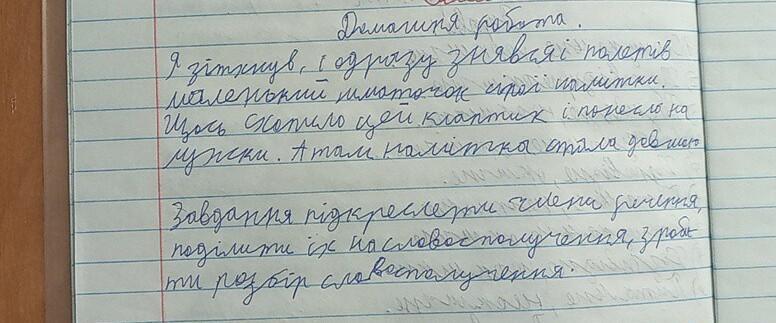 Домашня робота.
Я зітхнув, і одразу знявся і полетів
маленький шматочок сірої намітки.
Щось схопило цей клаптик і понесло на
лужки. А там намітка стала довшою
Завдання підкреслети члени речення,
поділити їх на словосполучення, зроби-
ти розбір словосполучення.